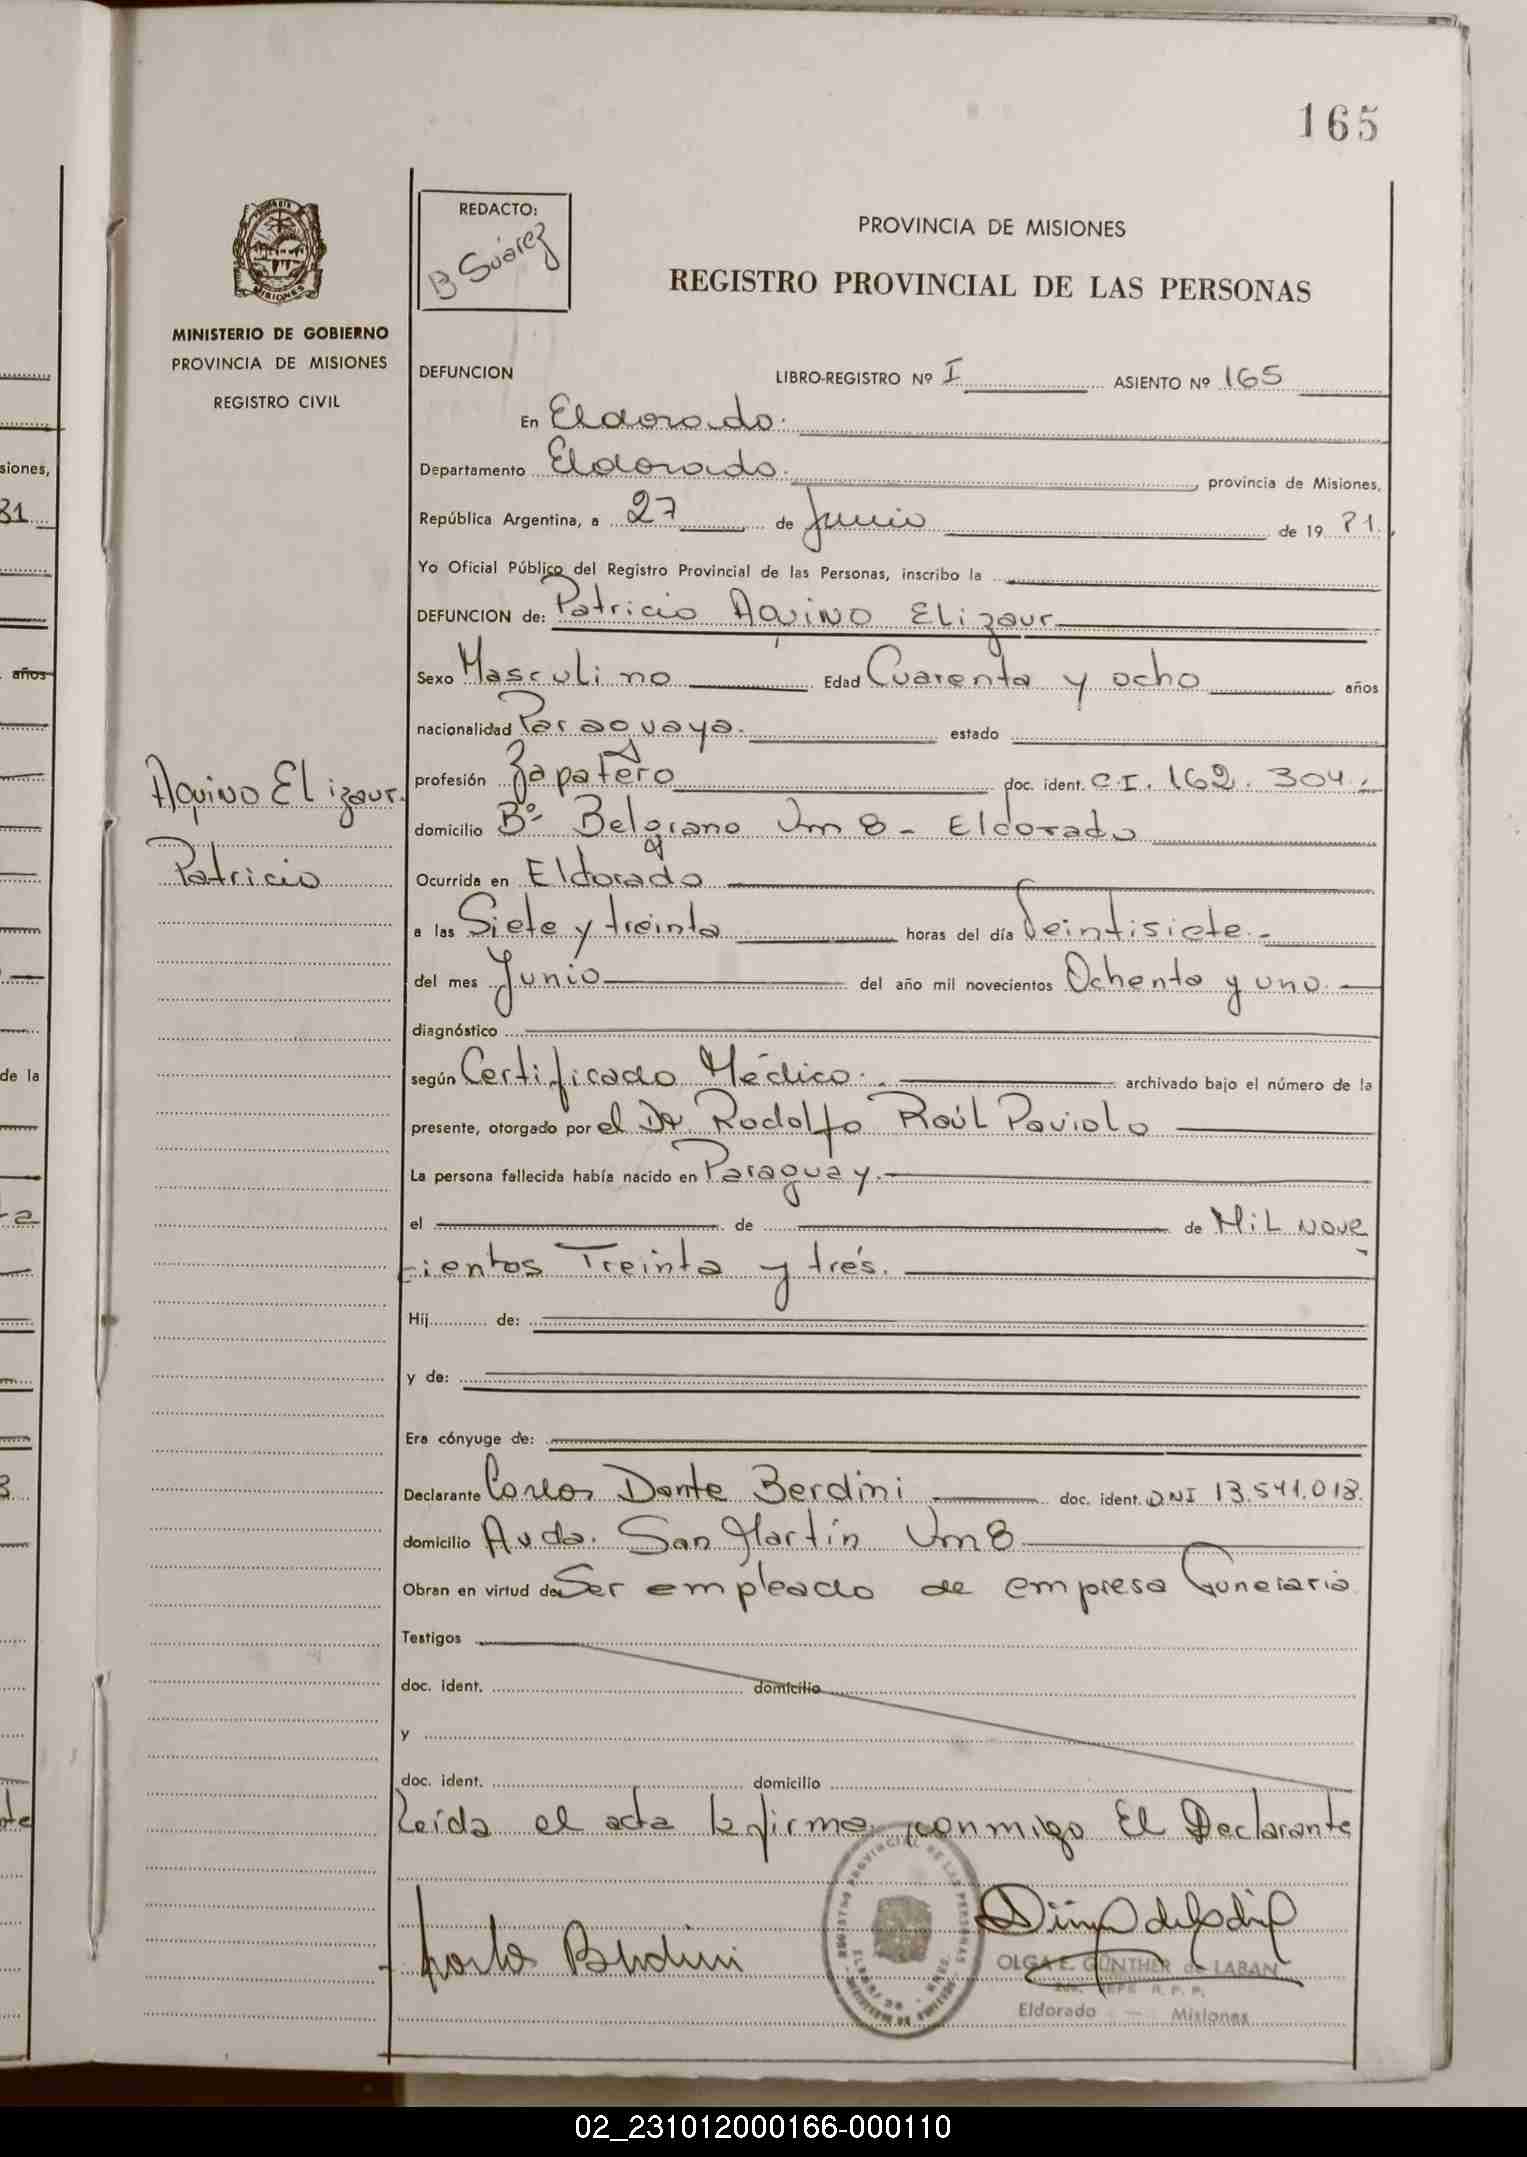 165
REDACTO:
B Suárez
PROVINCIA DE MISIONES
REGISTRO PROVINCIAL DE LAS PERSONAS
MINISTERIO DE GOBIERNO
PROVINCIA DE MISIONES
REGISTRO CIVIL
DEFUNCION LIBRO-REGISTRO Nº I ASIENTO Nº 165
En Eldorado.
Departamento Eldorado. provincia de Misiones,
República Argentina, a 27 de Junio de 19 81.
Yo Oficial Público del Registro Provincial de las Personas, inscribo la
DEFUNCION de: Patricio Aquino Elizaur
Sexo Masculino Edad Cuarenta y ocho años
nacionalidad Paraguaya. estado
Aquino Elizaur.
Patricio
profesión Zapatero doc. ident. C.I. 162.304.-
domicilio Bº Belgrano Km 8 - Eldorado
Ocurrida en Eldorado
a las Siete y treinta horas del día Veintisiete.-
del mes Junio del año mil novecientos Ochenta y uno.
diagnóstico
según Certificado Médico. archivado bajo el número de la
presente, otorgado por el Dr. Rodolfo Raúl Paviolo
La persona fallecida había nacido en Paraguay.
el de de Mil nove
cientos Treinta y trés.
Hij de:
y de:
Era cónyuge de:
Declarante Carlos Dante Berdini doc. ident. DNI 13.541.018.
domicilio Avda. San Martín Km 8
Obran en virtud de Ser empleado de empresa Funeraria
Testigos
doc. ident. domicilio
y
doc. ident. domicilio
Leída el acta la firma conmigo El Declarante
Carlos Berdini
REGISTRO PROVINCIAL DE LAS PERSONAS
OLGA E. GÜNTHER de LABAN
JEFE R. P. P.
Eldorado - Misiones
siones,
81
años
de la
02_231012000166-000110